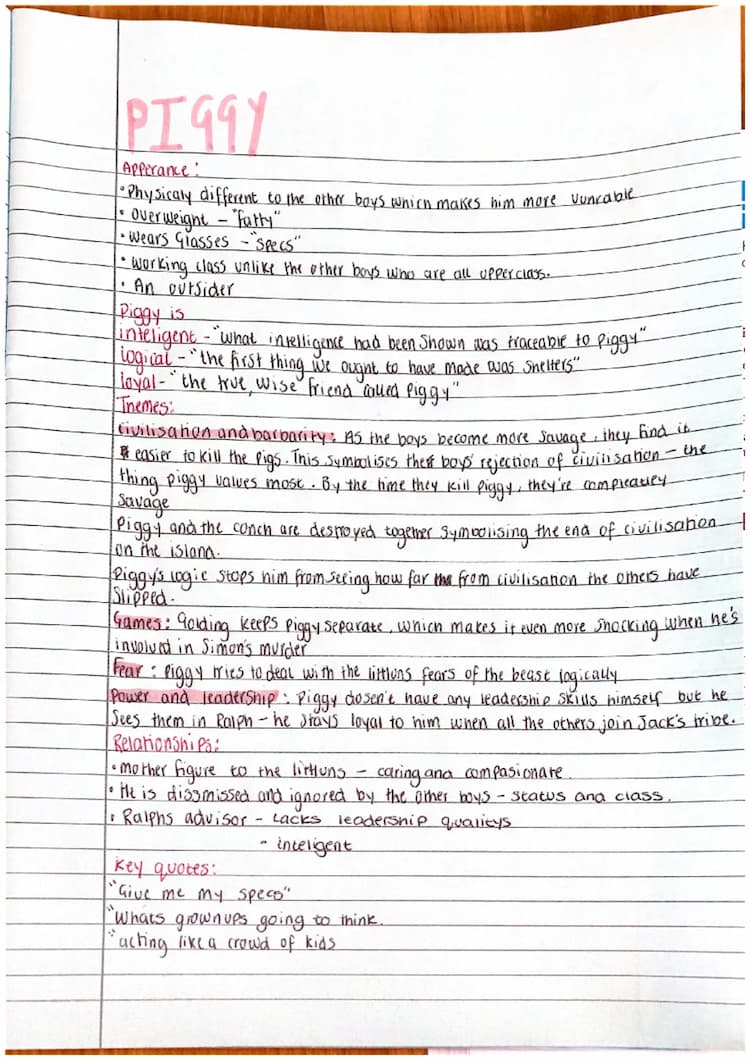 PIGGY
Apperance:
• Physicaly different to the other boys which makes him more vunrable
• overweight – "fatty"
• wears Glasses – "specs"
• working class unlike the other boys who are all upperclass.
• An outsider
Piggy is
inteligent – "what intelligence had been shown was traceable to Piggy"
logical – "the first thing we ought to have made was shelters"
loyal – "the true, wise friend called Piggy"
Themes:
Civilisation and barbarity: As the boys become more savage, they find it
easier to kill the pigs. This symbolises the boys' rejection of civilisation – the
thing piggy values most. By the time they kill piggy, they're compleatley
savage
Piggy and the conch are destroyed together symbolising the end of civilisation
on the island.
Piggy's logic stops him from seeing how far from civilisation the others have
slipped.
Games: Golding keeps Piggy separate, which makes it even more shocking when he's
involved in Simon's murder
Fear: Piggy tries to deal with the littluns fears of the beast logically
Power and leadership: Piggy dosen't have any leadership skills himself but he
sees them in Ralph – he stays loyal to him when all the others join Jack's tribe.
Relationships:
• mother figure to the littluns – caring and compasionate.
• He is dissmissed and ignored by the other boys – status and class.
• Ralphs advisor – Lacks leadership qualitys
– inteligent
Key quotes:
"Give me my specs"
"Whats grownups going to think.
"acting like a crowd of kids